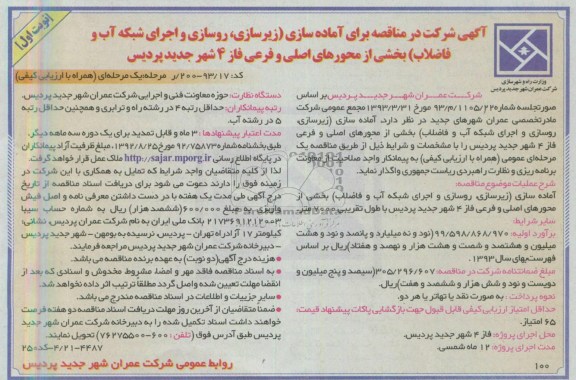 نوبت اول
آگهی شرکت در مناقصه برای آماده سازی (زیرسازی، روسازی و اجرای شبکه آب و
فاضلاب) بخشی از محورهای اصلی و فرعی فاز ۴ شهر جدید پردیس
وزارت راه و شهرسازی
شرکت عمران شهر جدید پردیس
کد: ۹۳/۱۷-۲۰۰/ر مرحله:یک مرحله‌ای (همراه با ارزیابی کیفی)
شرکت عمران شهر جدید پردیس بر اساس
صورتجلسه شماره ۱۱۰۵/۲۲۰/ص م مورخ ۱۳۹۳/۳/۳۱ مجمع عمومی شرکت
مادر تخصصی عمران شهرهای جدید در نظر دارد، آماده سازی (زیرسازی،
روسازی و اجرای شبکه آب و فاضلاب) بخشی از محورهای اصلی و فرعی
فاز ۴ شهر جدید پردیس را با مشخصات و شرایط ذیل از طریق مناقصه یک
مرحله‌ای عمومی (همراه با ارزیابی کیفی) به پیمانکار واجد صلاحیت از معاونت
برنامه ریزی و نظارت راهبردی ریاست جمهوری واگذار نماید.
شرح عملیات موضوع مناقصه:
آماده سازی (زیرسازی، روسازی و اجرای شبکه آب و فاضلاب) بخشی از
محورهای اصلی و فرعی فاز ۴ شهر جدید پردیس با طول تقریبی
سایر شرایط:
برآورد اولیه: ۹۹/۵۹۸/۸۶۸/۹۷۰ (نود و نه میلیارد و پانصد و نود و هشت
میلیون و هشتصد و شصت و هشت هزار و نهصد و هفتاد) ریال بر اساس
فهرست‌بهای سال ۱۳۹۳.
مبلغ ضمانتنامه شرکت در مناقصه: ۳۰۵/۲۹۶/۶۰۷ (سیصد و پنج میلیون و
دویست و نود و شش هزار و ششصد و هفت) ریال.
نحوه پرداخت: به صورت نقد یا تهاتر یا هر دو.
حداقل امتیاز ارزیابی کیفی قابل قبول جهت بازگشایی پاکات پیشنهاد قیمت:
۶۵ امتیاز.
محل اجرای پروژه: فاز ۴ شهر جدید پردیس.
مدت اجرای پروژه: ۱۲ ماه شمسی.
دستگاه نظارت: حوزه معاونت فنی و اجرایی شرکت عمران شهر جدید پردیس.
رتبه پیمانکاران: حداقل رتبه ۴ در رشته راه و ترابری و همچنین حداقل رتبه
۵ در رشته آب.
مدت اعتبار پیشنهادها: ۳ ماه و قابل تمدید برای یک دوره سه ماهه دیگر.
طبق بخشنامه شماره ۹۲/۷۵۸۷۳ مورخ ۱۳۹۲/۸/۲۵ مبلغ ظرفیت آزاد پیمانکاران
در پایگاه اطلاع رسانی http://sajar.mporg.ir ملاک عمل قرار خواهد گرفت.
لذا از کلیه متقاضیان واجد شرایط که تمایل به همکاری با این شرکت در
زمینه فوق را دارند دعوت می شود برای دریافت اسناد مناقصه از تاریخ
درج آگهی طی مدت یک هفته با در دست داشتن معرفی نامه و اصل فیش
واریزی به مبلغ ۶۰۰/۰۰۰ (ششصد هزار) ریال به شماره حساب سیبا
۲۱۷۳۶۹۱۲۱۲۰۰۳ بانک ملی ایران به نام شرکت عمران پردیس، نشانی:
کیلومتر ۱۷ آزادراه تهران - پردیس، نرسیده به بومهن - شهر جدید پردیس
- دبیرخانه شرکت عمران شهر جدید پردیس مراجعه فرمایند.
• هزینه درج آگهی (دو نوبت) به عهده برنده مناقصه می باشد.
• به اسناد مناقصه فاقد مهر و امضا، مشروط، مخدوش و اسنادی که بعد از
انقضا مهلت تعیین شده واصل گردد مطلقا ترتیب اثر داده نخواهد شد.
• سایر جزییات و اطلاعات در اسناد مناقصه مندرج می باشد.
• ضمنا متقاضیان از آخرین روز مهلت دریافت اسناد مناقصه دو هفته فرصت
خواهند داشت اسناد تکمیل شده را به دبیرخانه شرکت عمران شهر جدید
پردیس طبق آدرس فوق (تلفن: ۶۰۰-۷۶۲۷۵۵۰۰) تحویل نمایند.
۴/۲۱-۴۴۸۷-کد ۲۵
روابط عمومی شرکت عمران شهر جدید پردیس
۱۰۰